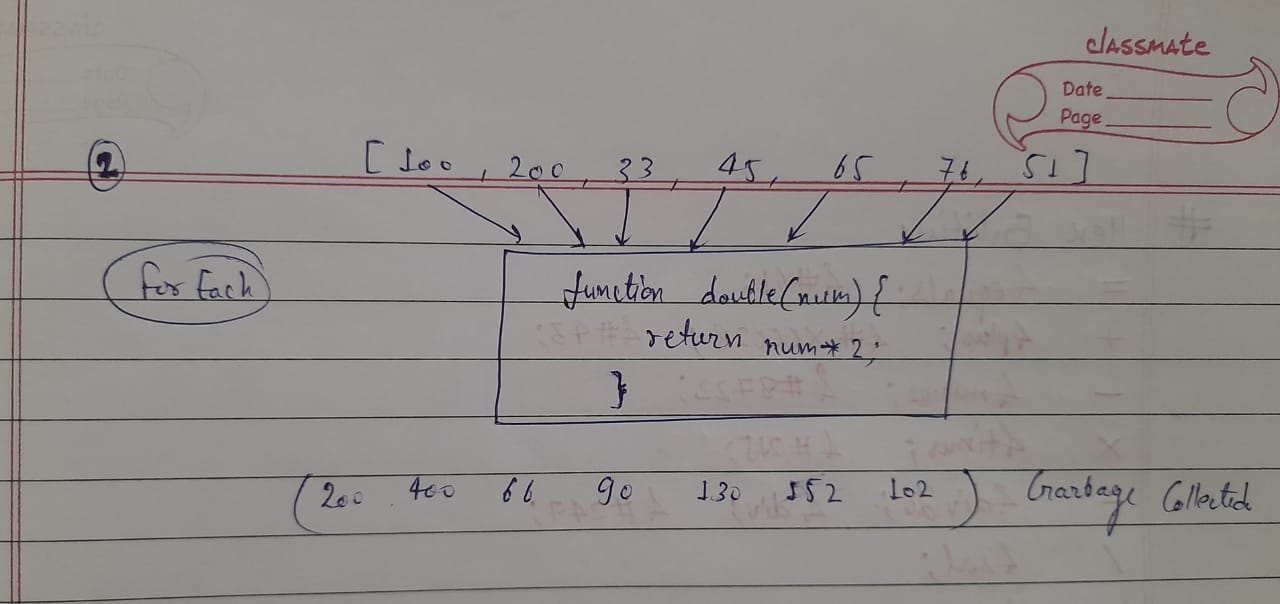 classmate
Date
Page
2 [100, 200, 33, 45, 65, 76, 51]
forEach
function double(num) {
return num * 2;
}
(200 400 66 90 130 152 102) Garbage Collected